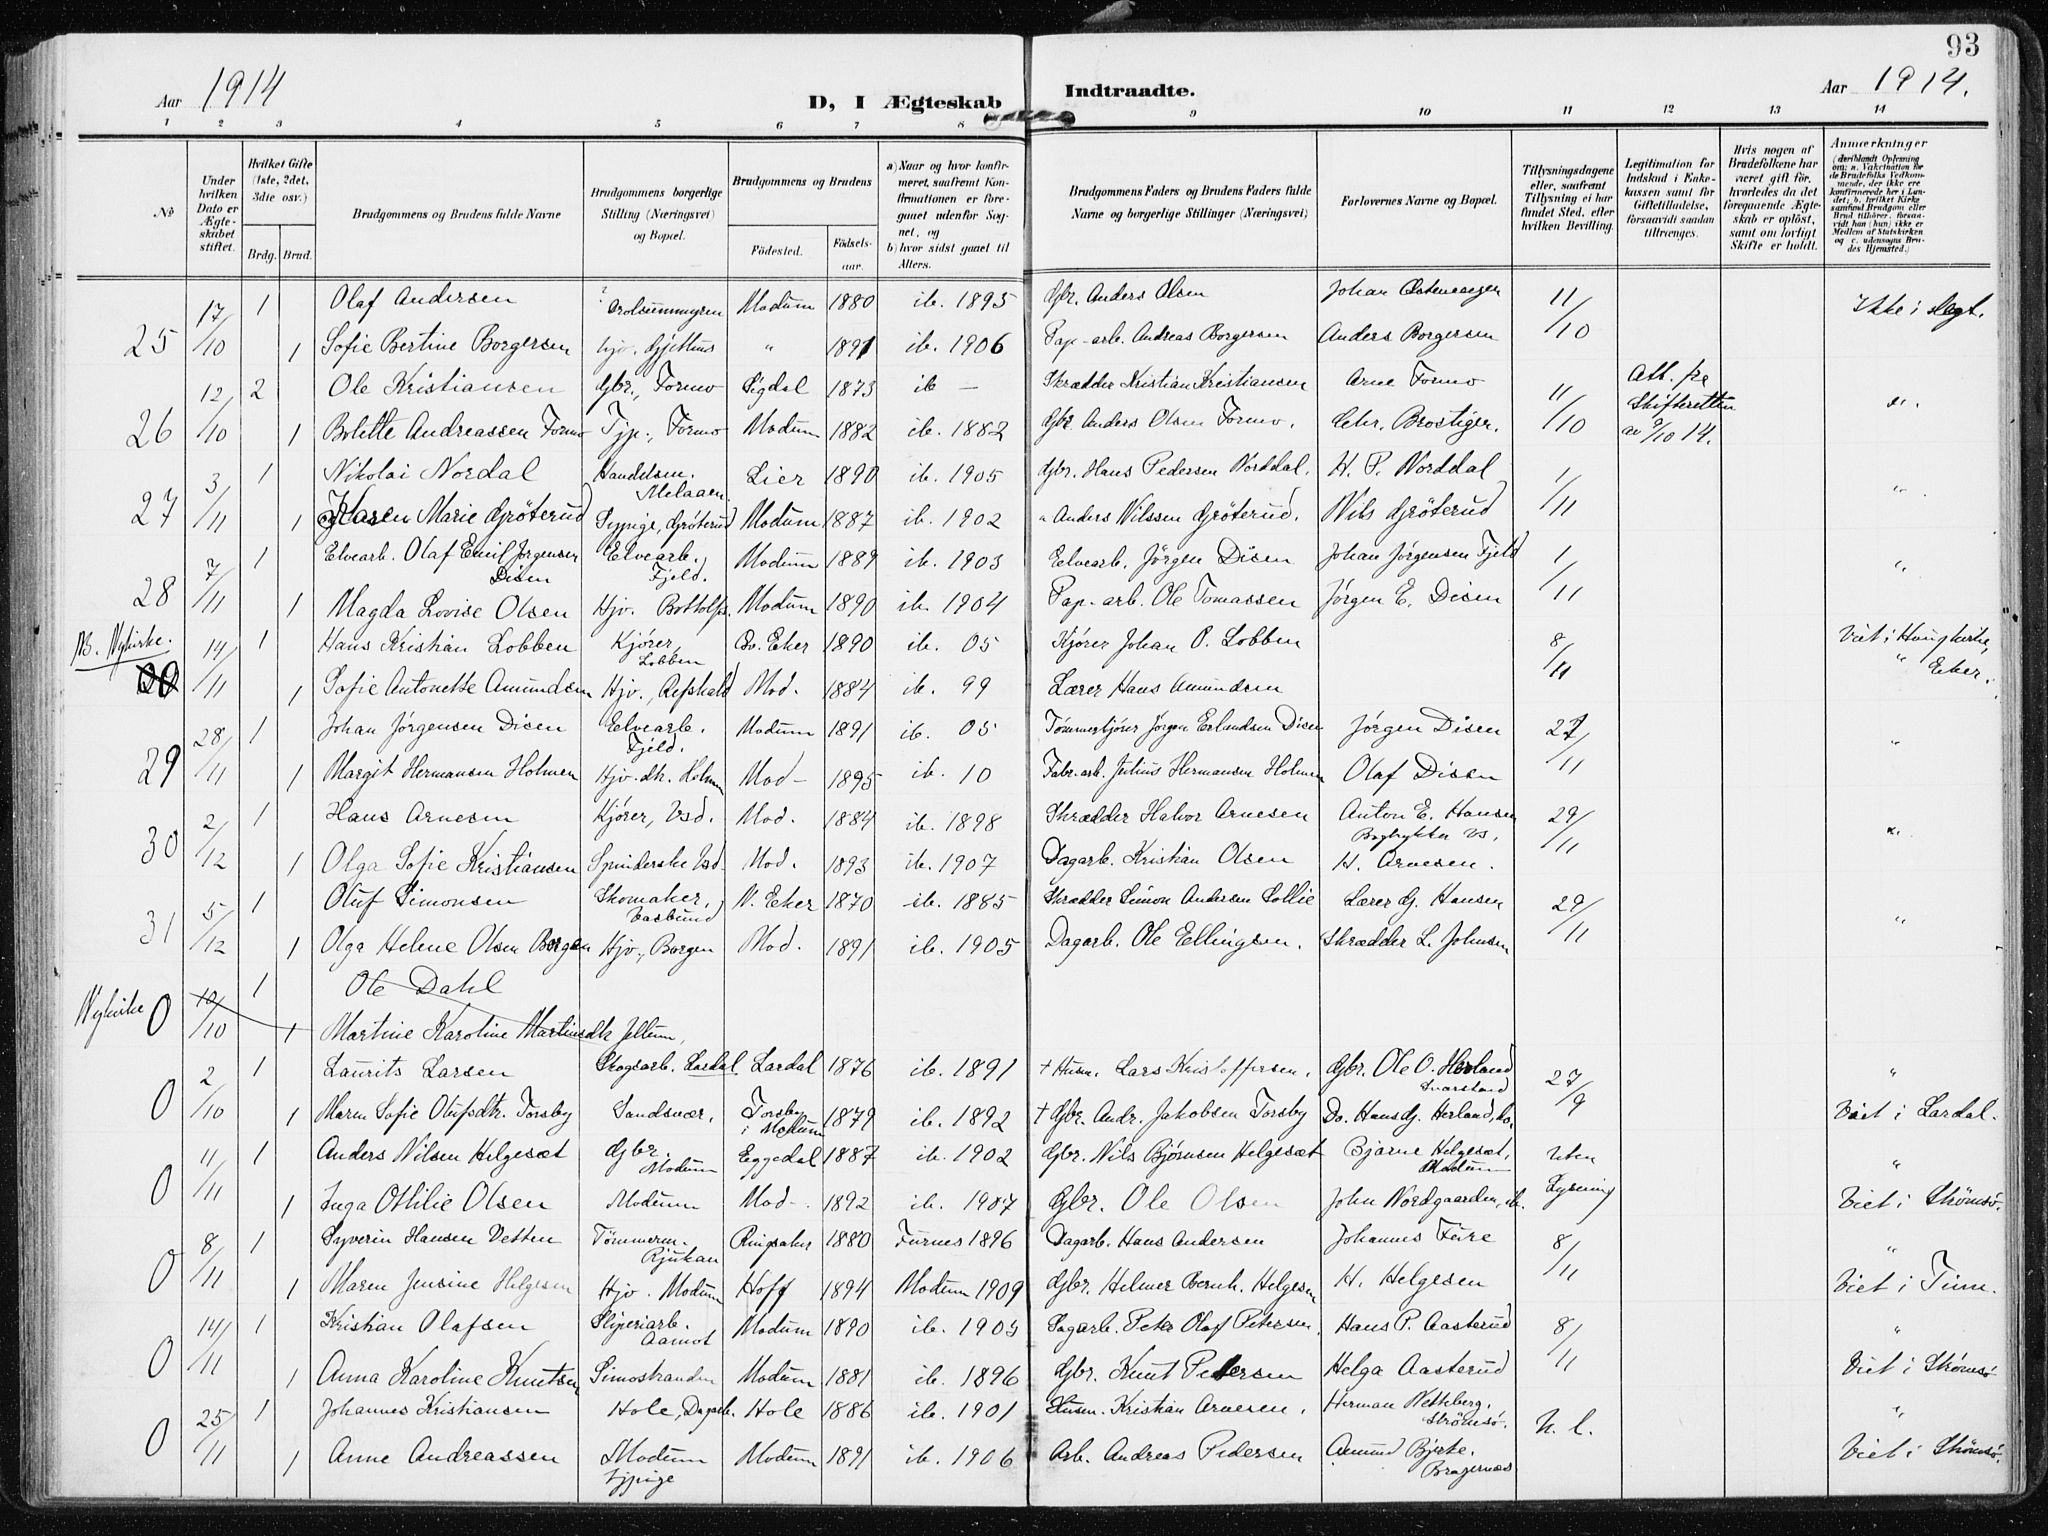 93
Aar 1914
D, I Ægteskab Indtraadte.
Aar 1914.
1 2 3 4 5 6 7 8 9 10 11 12 13 14
No
Under hvilken Dato er Ægteskabet stiftet.
Hvilket Gifte (1ste, 2det, 3die osv.)
Brdg. Brud.
Brudgommens og Brudens fulde Navne
Brudgommens borgerlige Stilling (Næringsvei) og Bopæl.
Brudgommens og Brudens
Födested. Födselsaar.
a) Naar og hvor konfirmeret, saafremt Konfirmationen er foregaaet udenfor Sognet, og
b) hvor sidst gaaet til Alters.
Brudgommens Faders og Brudens Faders fulde Navne og borgerlige Stillinger (Næringsvei)
Forlovernes Navne og Bopæl.
Tillysningsdagene eller, saafremt Tillysning ei har fundet Sted, efter hvilken Bevilling.
Legitimation for Indskud i Enkekassen samt for Giftetilladelse, forsaavidt saadan tiltrænges.
Hvis nogen af Brudefolkene har været gift för, hvorledes da det foregaaende Ægteskab er oplöst, samt om lovligt Skifte er holdt.
Anmærkninger
(deriblandt Oplysning om: a. Vakcination for de Brudefolks Vedkommende, der ikke ere konfirmerede her i Landet; b. hvilket Kirkesamfund Brudgom eller Brud tilhörer, forsaavidt han (hun) ikke er Medlem af Statskirken og c. udensogns Brudes Hjemsted.)
25 17/10 1 Olaf Andersen Modum 1880 ib. 1895 Gbr. Anders Olsen Johan 11/10 Ikke i slegt.
1 Sofie Bertine Borgersen hjv. Gjethus " 1891 ib. 1906 Pap-arb. Andreas Borgersen Anders Borgersen
26 12/10 2 Ole Kristiansen Gbr., Formo Sigdal 1873 ib — Skrædder Kristian Kristiansen Arne Formo 11/10 Att. fra Skifteretten av 9/10 14. "
1 Bolette Andreassen Formo Tjp., Formo Modum 1882 ib. 1882 Gbr Anders Olsen Formo. Chr. Brostiger.
27 3/11 1 Nikolai Nordal Handelsm. Melaaen Lier 1890 ib. 1905 Gbr. Hans Pedersen Norddal. H. P. Norddal 1/11 "
1 Karen Marie Gröterud Sypige, Gröterud Modum 1887 ib. 1902 " Anders Nilssen Gröterud. Nils Gröterud
28 7/11 1 Elvearb. Olaf Emil Jørgensen Disen Elvearb. Fjeld. Modum 1889 ib. 1903 Elvearb. Jörgen Disen Johan Jörgensen Fjeld 1/11 "
1 Magda Lovise Olsen Hjv. Bottolfs Modum 1890 ib. 1904 Pap-arb. Ole Tomassen Jørgen E. Disen
NB. Nykirke. 14/11 1 Hans Kristian Lobben Kjører, Lobben Øv. Eker 1890 ib. 05 Kjører Johan P. Lobben 8/11 Viet i Haugkirke, " Eker.
1 Sofie Antonette Amundsen Hjv., Refshald Mod. 1884 ib. 99 Lærer Hans Amundsen
29 28/11 1 Johan Jørgensen Disen Elvearb. Fjeld. Modum 1891 ib. 05 Tømmerkjører Jørgen Erlandsen Disen Jørgen Disen 27/11 "
1 Margit Hermansen Holmen Hjv. dk. Holmen Mod- 1895 ib. 10 Fabr.arb. Julius Hermansen Holmen Olaf Disen
30 2/12 1 Hans Arnesen Kjører, Vsd. Mod. 1884 ib. 1898 Skrædder Halvor Arnesen Anton E. Hansen Bogtrykker Vs, 29/11 "
1 Olga Sofie Kristiansen Spinderske Vsd Mod. 1893 ib. 1907 Dagarb. Kristian Olsen H. Arnesen.
31 5/12 1 Oluf Simonsen Skomaker, Vasbund N. Eker 1870 ib. 1885 Skrædder Simon Andersen Sollie Lærer G. Hansen 29/11 "
1 Olga Helene Olsen Borgen Hjv., Borgen Mod. 1891 ib. 1905 Dagarb. Ole Ellingsen. Skrædder L. Johnsen
Nykirke 0 10/10 1 Ole Dahl
1 Martine Karoline Martinsdk Jellum,
0 2/10 1 Laurits Larsen Skogsarb. Lardal Lardal 1876 ib. 1891 + Husm. Lars Kristoffersen. Gbr. Ole O. Herland Svarstad 27/9 "
1 Maren Sofie Olufsdtr. Torsby Sandsvær, Torsby i Modum 1879 ib. 1892 + Gbr. Andr. Jakobsen Torsby Do. Hans G. Herland, do. Viet i Lardal.
0 11/11 1 Anders Nilsen Helgesæt Gbr. Modum Eggedal 1887 ib. 1902 Gbr. Nils Bjørnsen Helgesæt Bjarne Helgesæt, Modum Uten Lysning "
1 Inga Othilie Olsen Modum Mod-. 1892 ib. 1907 Gbr. Ole Olsen John Nordgaarden, ib. Viet i Strömsö.
0 8/11 1 Syverin Hansen Vetten Tömmerm. Rjukan Ringsaker 1880 Furnes 1896 Dagarb. Hans Andersen Johannes Feire 8/11 "
1 Maren Jensine Helgesen Hjv. Modum Hoff 1894 Modum 1909 Gbr. Helmer Bernh. Helgesen H. Helgesen Viet i Tinn.
0 14/11 1 Kristian Olafsen Sliperiarb. Aamot Modum 1890 ib. 1905 Sagarb. Peter Olaf Petersen. Hans P. Aasterud 8/11 "
1 Anna Karoline Knutsen Simostranden Modum 1881 ib. 1896 Gbr. Knut Pedersen Helga Aasterud Viet i Strömsö
0 25/11 1 Johannes Kristiansen Hole, Dagarb. Hole 1886 ib. 1901 Husm. Kristian Arnesen. Herman Vethberg, Strömsö. U. l. "
1 Anne Andreassen Modum Sypige Modum 1891 ib. 1906 Arb. Andreas Pedersen Amund Bjerke, Bragernæs Viet i Strömsö.